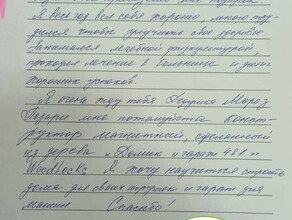 Я весь год вел себя хорошо, много тру-
дился чтобы улучшить свое здоровье
Занимался лечебной физкультурой,
проходил лечение в больнице и достиг
хороших успехов.
Я очень жду тебя Дедушка Мороз
Подари мне пожалуйста конст-
руктор магнитный, сделанный
из дерева "Домик и гараж 481"
WoodLooks Я хочу научиться строить
дома для своих игрушек и гараж для
машин Спасибо!